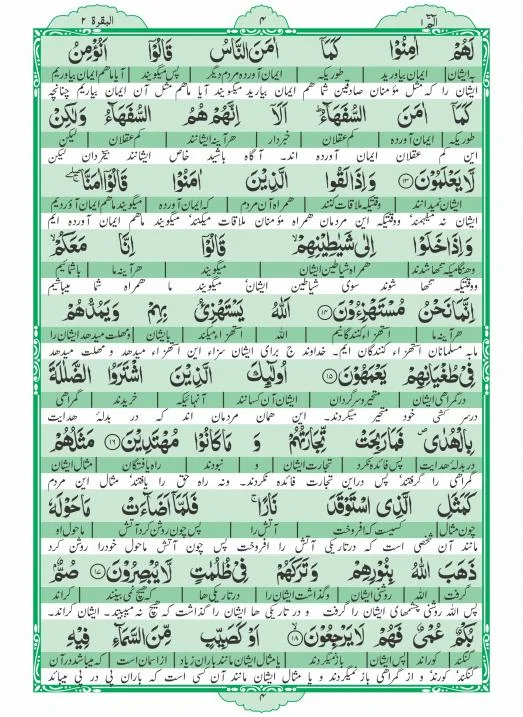 البقرة ٢ ۴ الٓمّ ١
لَهُمْ اٰمِنُوْا كَمَاۤ اٰمَنَ النَّاسُ قَالُوْۤا اَنُؤْمِنُ
به ایشان | ایمان بیاورید | طوریکه | ایمان آورده مردم دیگر | پس میگویند | آیا ما هم ایمان بیاوریم
ایشان را که مثل مؤمنان صادقین شما هم ایمان بیارید میگویند آیا ماهم مثل آن ایمان بیاریم چنانچه
كَمَاۤ اٰمَنَ السُّفَهَآءُ ؕ اَلَاۤ اِنَّهُمْ هُمُ السُّفَهَآءُ وَلٰكِنْ
طوریکه | ایمان آورده | کم عقلان | خبردار | هر آینه ایشانند | کم عقلان | لیکن
این کم عقلان ایمان آورده اند. آگاه باشید خاص ایشانند بیخردان لیکن
لَّا يَعْلَمُوْنَ ﴿۱۳﴾ وَاِذَا لَقُوا الَّذِيْنَ اٰمَنُوْا قَالُوْۤا اٰمَنَّا ۚۖ
ایشان نمیدانند | وقتیکه ملاقات کنند | همراه آن مردم | که ایمان آورده | میگویند ما هم ایمان آوردیم
ایشان نه میفهمند ووقتیکه این مردمان همراه مؤمنان ملاقات میکنند میگویند ماهم ایمان آورده ایم
وَاِذَا خَلَوْا اِلٰى شَيٰطِيْنِهِمْ ۙ قَالُوْۤا اِنَّا مَعَكُمْ ۙ
وهنگامیکه تنها شدند | همراه شیاطین ایشان | میگویند | هر آینه ما | با شمائیم
ووقتیکه تنها شوند سوی شیاطین ایشان میگویند ما همراه شما میباشیم
اِنَّمَا نَحْنُ مُسْتَهْزِءُوْنَ ﴿۱۴﴾ اَللّٰهُ يَسْتَهْزِئُ بِهِمْ وَيَمُدُّهُمْ
هر آینه ما | استهزاء کنندگانیم | الله | استهزاء میکند | بایشان | ومهلت میدهد ایشان را
مابه مسلمانان استهزاء کنندگان ایم. خداوند ج برای ایشان سزاء این استهزاء میدهد و مهلت میدهد
فِيْ طُغْيَانِهِمْ يَعْمَهُوْنَ ﴿۱۵﴾ اُولٰٓئِكَ الَّذِيْنَ اشْتَرَوُا الضَّلٰلَةَ
در گمراهی ایشان | متحیر و سرگردان | ایشان آن کسانند | آنهائیکه | خریدند | گمراهی
درسرکشی خود متحیر میگردند. این همان مردمان اند که در بدلهٔ هدایت
بِالْهُدٰى ۪ فَمَا رَبِحَتْ تِّجَارَتُهُمْ وَ مَا كَانُوْا مُهْتَدِيْنَ ﴿۱۶﴾ مَثَلُهُمْ
در بدله هدایت | پس فائده نکرد | تجارت ایشان | و | نبودند | راه یافتگان | مثال ایشان
گمراهی را گرفتند پس دراین تجارت فائده نکردند. ونه راه حق را یافتند مثال این مردم
كَمَثَلِ الَّذِي اسْتَوْقَدَ نَارًا ۚ فَلَمَّاۤ اَضَآءَتْ مَا حَوْلَهٗ
چون مثال | کسیست که افروخت | آتش را | پس چون روشن کرد آتش | ماحول او
مانند آن شخصی است که درتاریکی آتش را افروخت پس چون آتش ماحول خودرا روشن کرد
ذَهَبَ اللّٰهُ بِنُوْرِهِمْ وَتَرَكَهُمْ فِيْ ظُلُمٰتٍ لَّا يُبْصِرُوْنَ ﴿۱۷﴾ صُمٌّۢ
گرفت | الله | روشنی ایشان | وگذاشت ایشان را | در تاریکی ها | که هیچ نمی بینند | کراند
پس الله روشنی چشمهای ایشان را گرفت و در تاریکی ها ایشان را گذاشت که هیچ نه میبیند. ایشان کراند.
بُكْمٌ عُمْيٌ فَهُمْ لَا يَرْجِعُوْنَ ﴿۱۸﴾ اَوْ كَصَيِّبٍ مِّنَ السَّمَآءِ فِيْهِ
گنگند | کوراند | پس ایشان | باز نمیگردند | یا مثال ایشان مانند باران زیاد | از آسمان است | که میباشد در آن
گنگند کورند و از گمراهی باز نمیگردند و یا مثال ایشان مانند آن کسی است که باران پی در پی میباند
۴